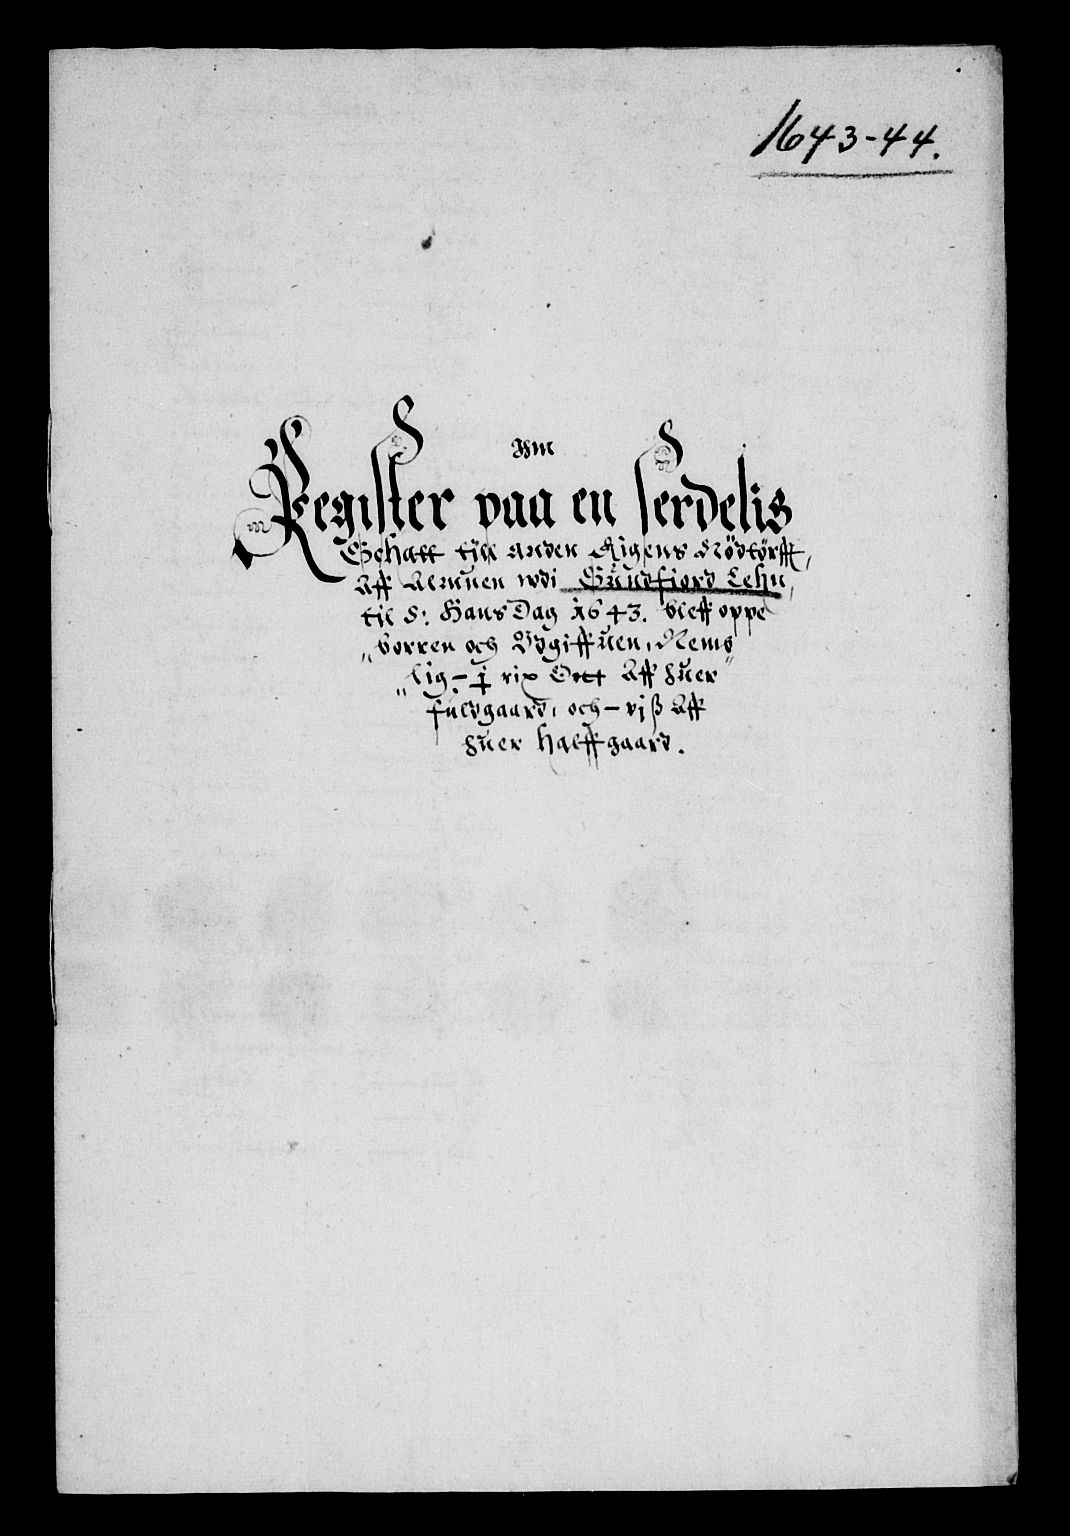 1643-44.
Register paa en serdelis
Schatt till anden Rigens Nödtörfft,
Aff Almuen wdi Sundfiord Lehn,
til S: Hans Dag 1643. bleff oppe
borren och Vdgiffuen, Nems
lig - j rix Ortt Aff huer
fuldgaard, och - vj ß Aff
huer halffgaard.